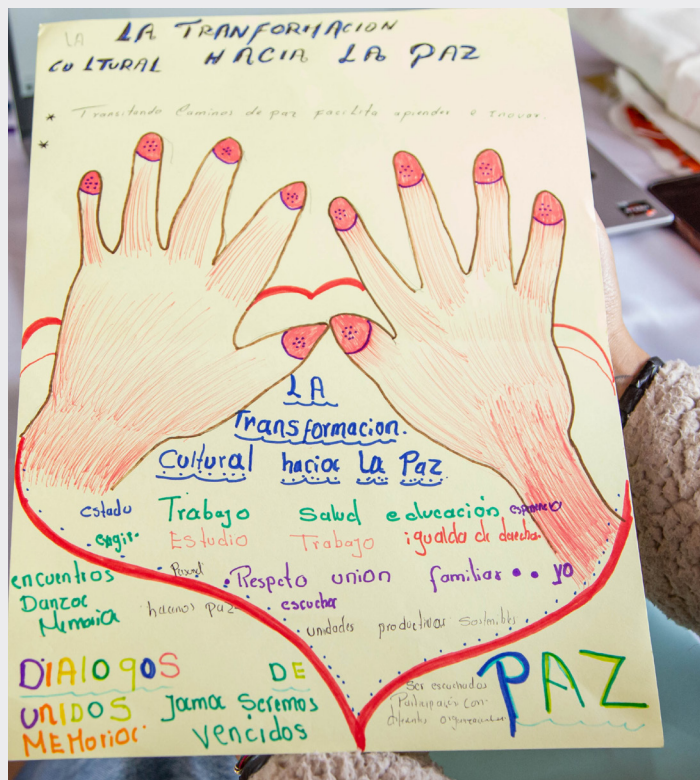 LA LA TRANFORMACION
CULTURAL HACIA LA PAZ
* Transitando Caminos de paz facilita aprender e inovar.
*
LA
Transformacion.
Cultural hacia La Paz
estado Trabajo Salud educación
exigir. Estudio Trabajo igualda de derecho.
encuentros
Danzar
Memoria
Respeto union familiar . . yo
hacenos paz
escuchar
unidades productivas Sostenibles
DIALOGOS DE PAZ
UNIDOS Jamar Seremos
MEMoriar vencidos
Ser escuchados
Participación con
diferentes